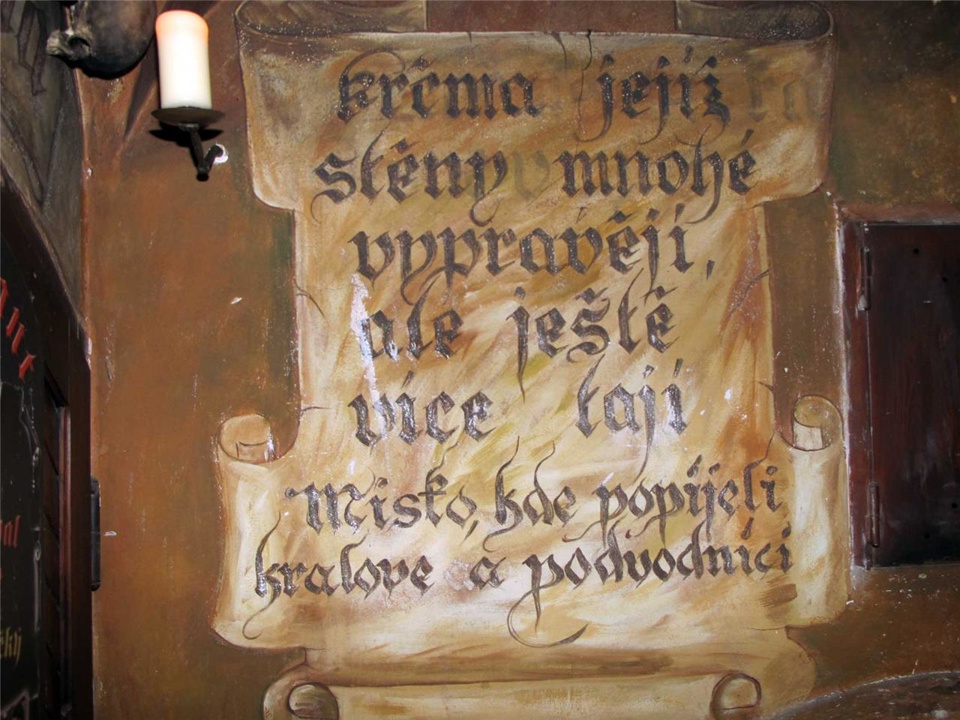 krčma jejíž
stěny mnohé
vyprávějí,
ale ještě
více tají
Misko, kde popijeli
kralove a podvodníci